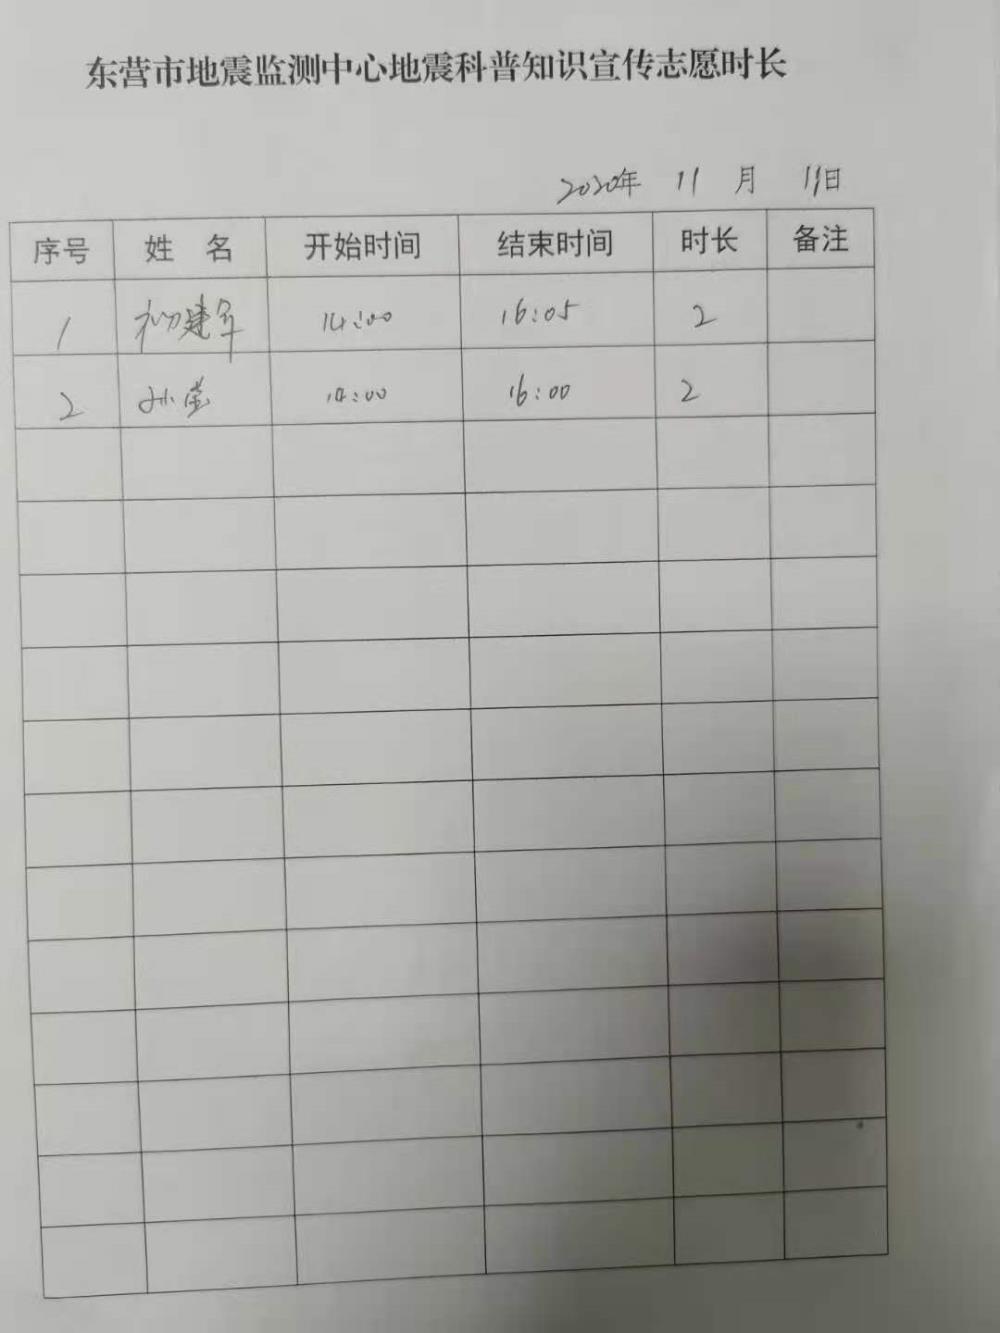 东营市地震监测中心地震科普知识宣传志愿时长
2020年 11 月 11日
序号 姓 名 开始时间 结束时间 时长 备注
1 初建军 14:00 16:05 2
2 孙莹 14:00 16:00 2